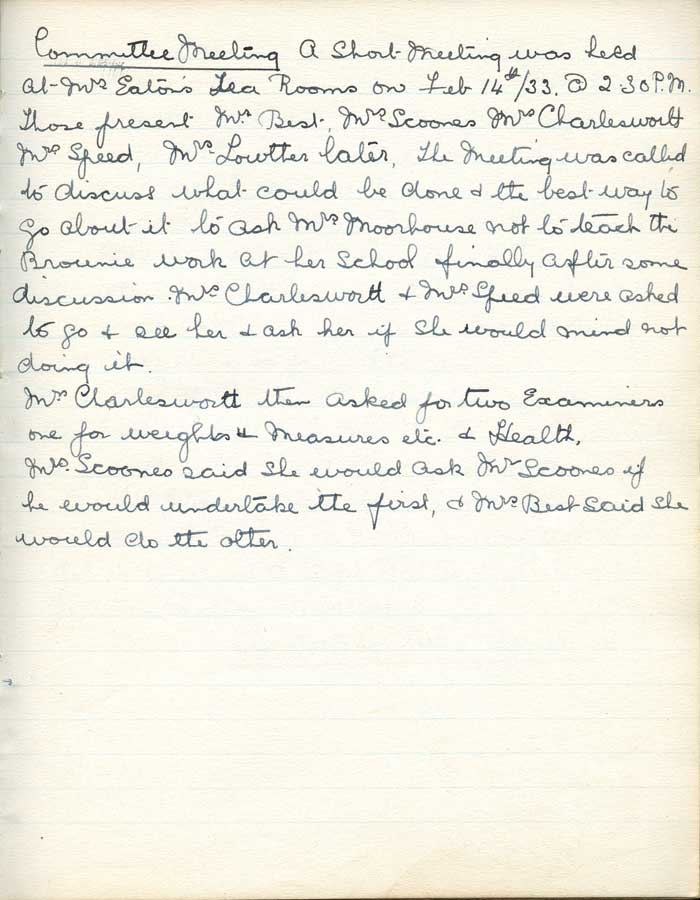 Committee Meeting A Short Meeting was held
at Mrs Eaton's Tea Rooms on Feb 14th/33. @ 2.30 P.M.
Those present Mrs Best, Mrs Scoones Mrs Charlesworth
Mrs Speed, Mrs Lowtter later, The Meeting was called
to discuss what could be done & the best way to
go about it to ask Mrs Moorhouse not to teach the
Brownie work at her School finally after some
discussion. Mrs Charlesworth & Mrs Speed were asked
to go & see her & ask her if she would mind not
doing it.
Mrs Charlesworth then asked for two Examiners
one for weights & Measures etc. & Health,
Mrs. Scoones said she would ask Mr Scoones if
he would undertake the first, & Mrs Best said she
would do the other.